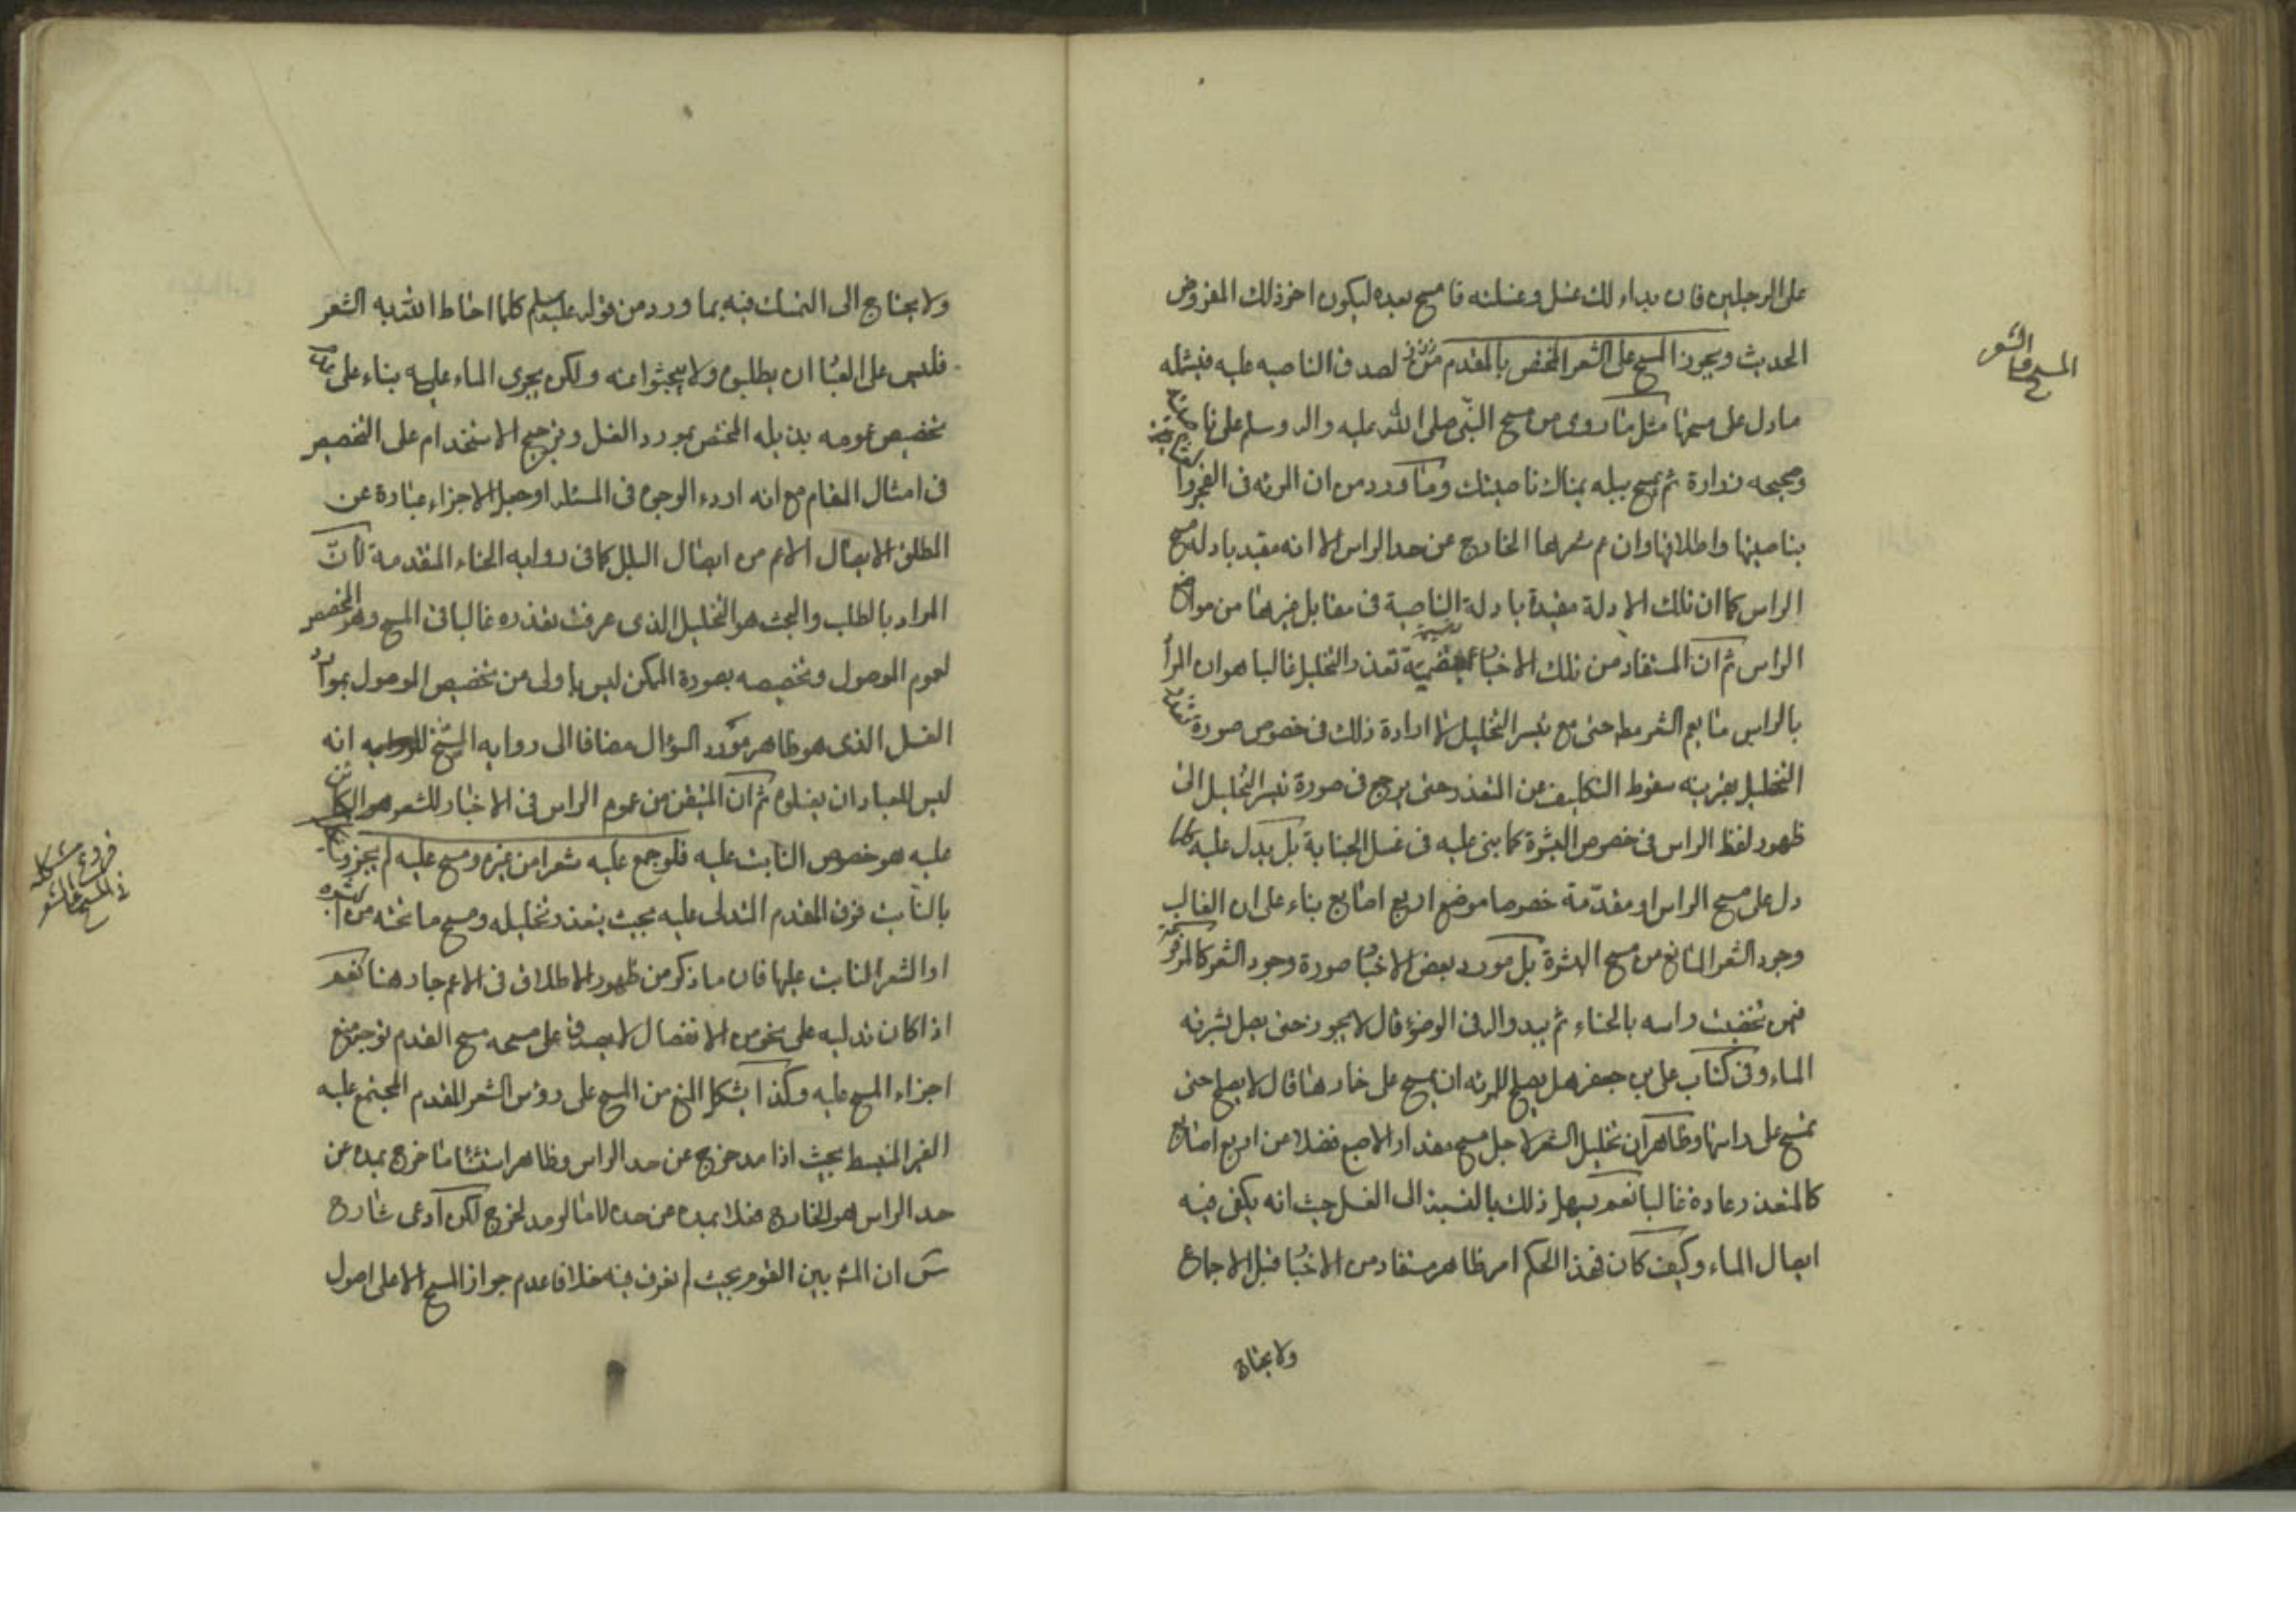 على الرجلين فان بداء لك غسل وغسلته فامسح بعده ليكون اخر ذلك المفروض
الحديث ويجوز المسح على الشعر المختص بالمقدم لصدق الناصيه عليه فيشمله
مادل على مسحها مثل ما روى من مسح النبى صلى الله عليه واله وسلم على نا
وصحيحه زرارة ثم تمسح ببله يمناك ناصيتك وما ورد من ان المرئه فى الفجر
بناصيتها واطلاقها وان عم شعرها الخارج عن حد الراس الا انه مقيد بادله مسح
الراس كما ان تلك الادلة مقيدة بادلة الناصية فى مقابل غيرها من مواضع
الراس ثم ان المستفاد من تلك الاخبا تعذر التخليل غالبا هو ان المرا
بالراس ما يعم الشعر مط حتى مع تيسر التخليل لا ارادة ذلك فى خصوص صورة تعذر
التخليل بقرينه سقوط التكليف من التعذر حتى يرجع فى صورة تيسر التخليل الى
ظهور لفظ الراس فى خصوص البشرة كما بنى عليه فى غسل الجنابة بل يدل عليه كلما
دل على مسح الراس او مقدّمة خصوصا موضع اربع اصابع بناء على ان الغالب
وجود الشعر المانع من مسح البشرة بل مورد بعض الاخبا صورة وجود الشعر كالمرفوعة
فيمن تخضب راسه بالحناء ثم يبدو اله فى الوضوء قال لا يجوز حتى يصل بشرته
الماء وفى كتاب على بن جعفر هل يصلح للمرئه ان تمسح على خمارها قال لا يصلح حتى
تمسح على راسها وظاهر ان تخليل الشعر لاجل مسح مقدار الاصبع فضلا من اربع اصابع
كالمتعذر عادة غالبا نعم يسهل ذلك بالنسبة الى الغسل حيث انه يكفى فيه
ايصال الماء وكيف كان فهذا الحكم امر ظاهر مستفاد من الاخبا قبل الاجماع
ولا يحتاج
المسح على الشعر
ولا يحتاج الى التمسك فيه بما ورد من قوله عليه السلم كلما احاط الله به الشعر
فليس على العبا ان يطلبوه ولا يبحثوا عنه ولكن يجرى الماء عليه بناء على
تخصيص عمومه بذيله المختص بمورد الغسل وترجيح الاستخدام على التخصيص
فى امثال المقام مع انه اردء الوجوه فى المسئله او جعل الاجراء عبارة عن
المطلق الايصال الاعم من ايصال البلل كما فى رواية الحناء المتقدمة لان
المراد بالطلب والبحث هو التخليل الذى عرفت تعذره غالبا فى المسح وهو المخصص
لعموم الموصول وتخصيصه بصورة الممكن ليس باولى من تخصيص الموصول بموارد
الغسل الذى هو ظاهر مورد السؤال مضافا الى رواية الشيخ انه
ليس للعباد ان يغسلوه ثم ان المتيقن من عموم الراس فى الاخبار للشعر هو الكائن
عليه هو خصوص النابت عليه فلو جمع عليه شعرا من غيره ومسح عليه لم يجز
بالنابت فوق المقدم المتدلى عليه بحيث يتعذر تخليله ومسح ما تحته من البشره
او الشعر النابت عليها فان ما ذكر من ظهور الاطلاق فى الاعم جار هنا نعم
اذا كان تدليه على نحو من الانفصال لا يصدق على مسحه مسح المقدم توجه منع
اجزاء المسح عليه وكذا يشكل المنع من المسح على رؤس الشعر المقدم المجتمع عليه
الغير المنبسط بحيث اذا مد خرج عن حد الراس وظاهر استثنا ما خرج بمده عن
حد الراس هو الخارج فعلا بمده عن حده لا ما لو مد لخرج لكن ادعى شارح
س ان المش بين القوم بحيث لم نعرف فيه خلافا عدم جواز المسح الا على اصول
فروع مشكله
فى المسح على الشعر